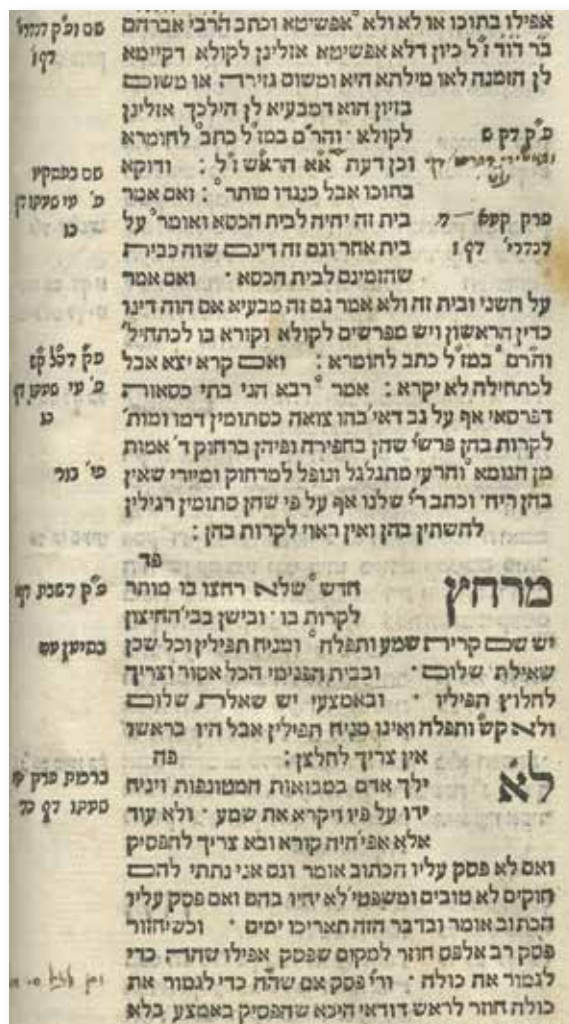 אפילו בתוכו או לא ולא אפשיטא וכתב הרבי אברהם
בר דוד ז"ל כיון דלא אפשיטא אזלינן לקולא דקיימא
לן הזמנה לאו מילתא היא ומשום גזירה או משום
בזיון הוא דמבעיא לן הילכך אזלינן
לקולא · והר"ם במז"ל כתב לחומרא
וכן דעת א"א הרא"ש ז"ל : ודוקא
בתוכו אבל כנגדו מותר : ואם אמר
בית זה יהיה לבית הכסא ואומר על
בית אחר וגם זה דינם שוה כבירת
שהזמינם לבית הכסא · ואם אמר
על השני ובית זה ולא אמר גם זה מבעיא אם הוה דינו
כדין הראשון ויש מפרשים לקולא וקורא בו לכתחיל'
והר"ם במז"ל כתב לחומרא : ואם קרא יצא אבל
לכתחילה לא יקרא : אמר רבא הני בתי כסאורת
דפרסאי אף על גב דאי' בהו צואה כסתומין דמו ומות'
לקרות בהן פרש"י שהן בחפירה ופיהן ברחוק ד' אמות
מן הגומא והרעי מתגלגל ונופל למרחוק ומיירי שאין
בהן ריח · וכתב ר"י שלנו אף על פי שהן סתומין רגילין
להשתין בהן ואין ראוי לקרות בהן :
פד
מרחץ חדש שלא רחצו בו מותר
לקרות בו · ובישן בבי' החיצון
יש שם קרירת שמע ותפלה ומניח תפילין וכל שכן
שאילת שלום · ובבית הפנימי הכל אסור וצריך
לחלוץ תפיליו · ובאמצעי יש שאלרת שלום
ולא ק"ש ותפלה ואינו מניח תפילין אבל היו בראשו
אין צריך לחלצן : פה
לא ילך אדם במבואות המטונפות ויניח
ידו על פיו ויקרא את שמע · ולא עוד
אלא אפי' היה קורא ובא צריך להפסיק
ואם לא פסק עליו הכתוב אומר וגם אני נתתי להם
חוקים לא טובים ומשפטי' לא יחיו בהם ואם פסק עליו
הכתוב אומר ובדבר הזה תאריכו ימים · וכשיחזור
פסק רב אלפס חוזר למקום שפסק אפילו שהה כדי
לגמור את כולה · ור"י פסק אם שהה כדי לגמור את
כולה חוזר לראש דודאי היכא שהפסיק באמצע בלא
שם
דף ו
שם
פ"ק דף ט
פרק
דנדרי' דף ז
כג
פי' כול
פ"ק דשבת דף
ברכות פרק
דף כד